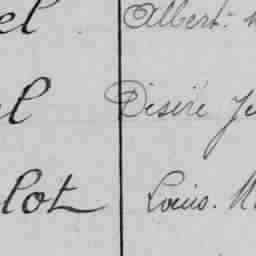 el Albert.
el Désiré Je
lot Louis.